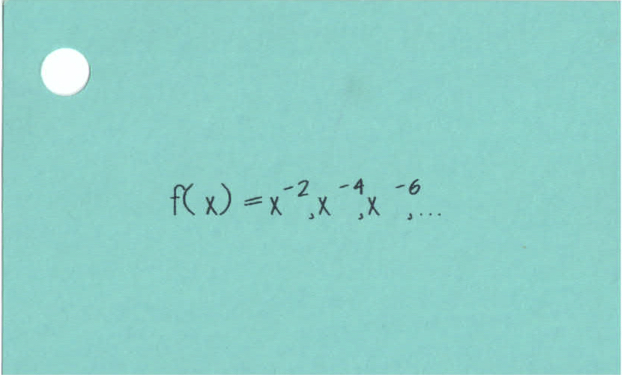 f(x) = x⁻², x⁻⁴, x⁻⁶, ...